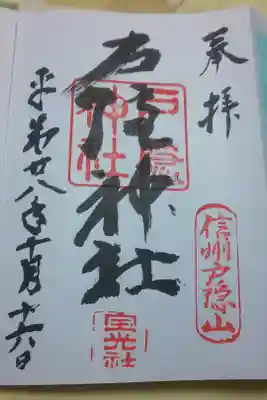 奉拝
信州戸隠山
戸隠神社
戸隠神社
宝光社
平成廿八年十月十六日